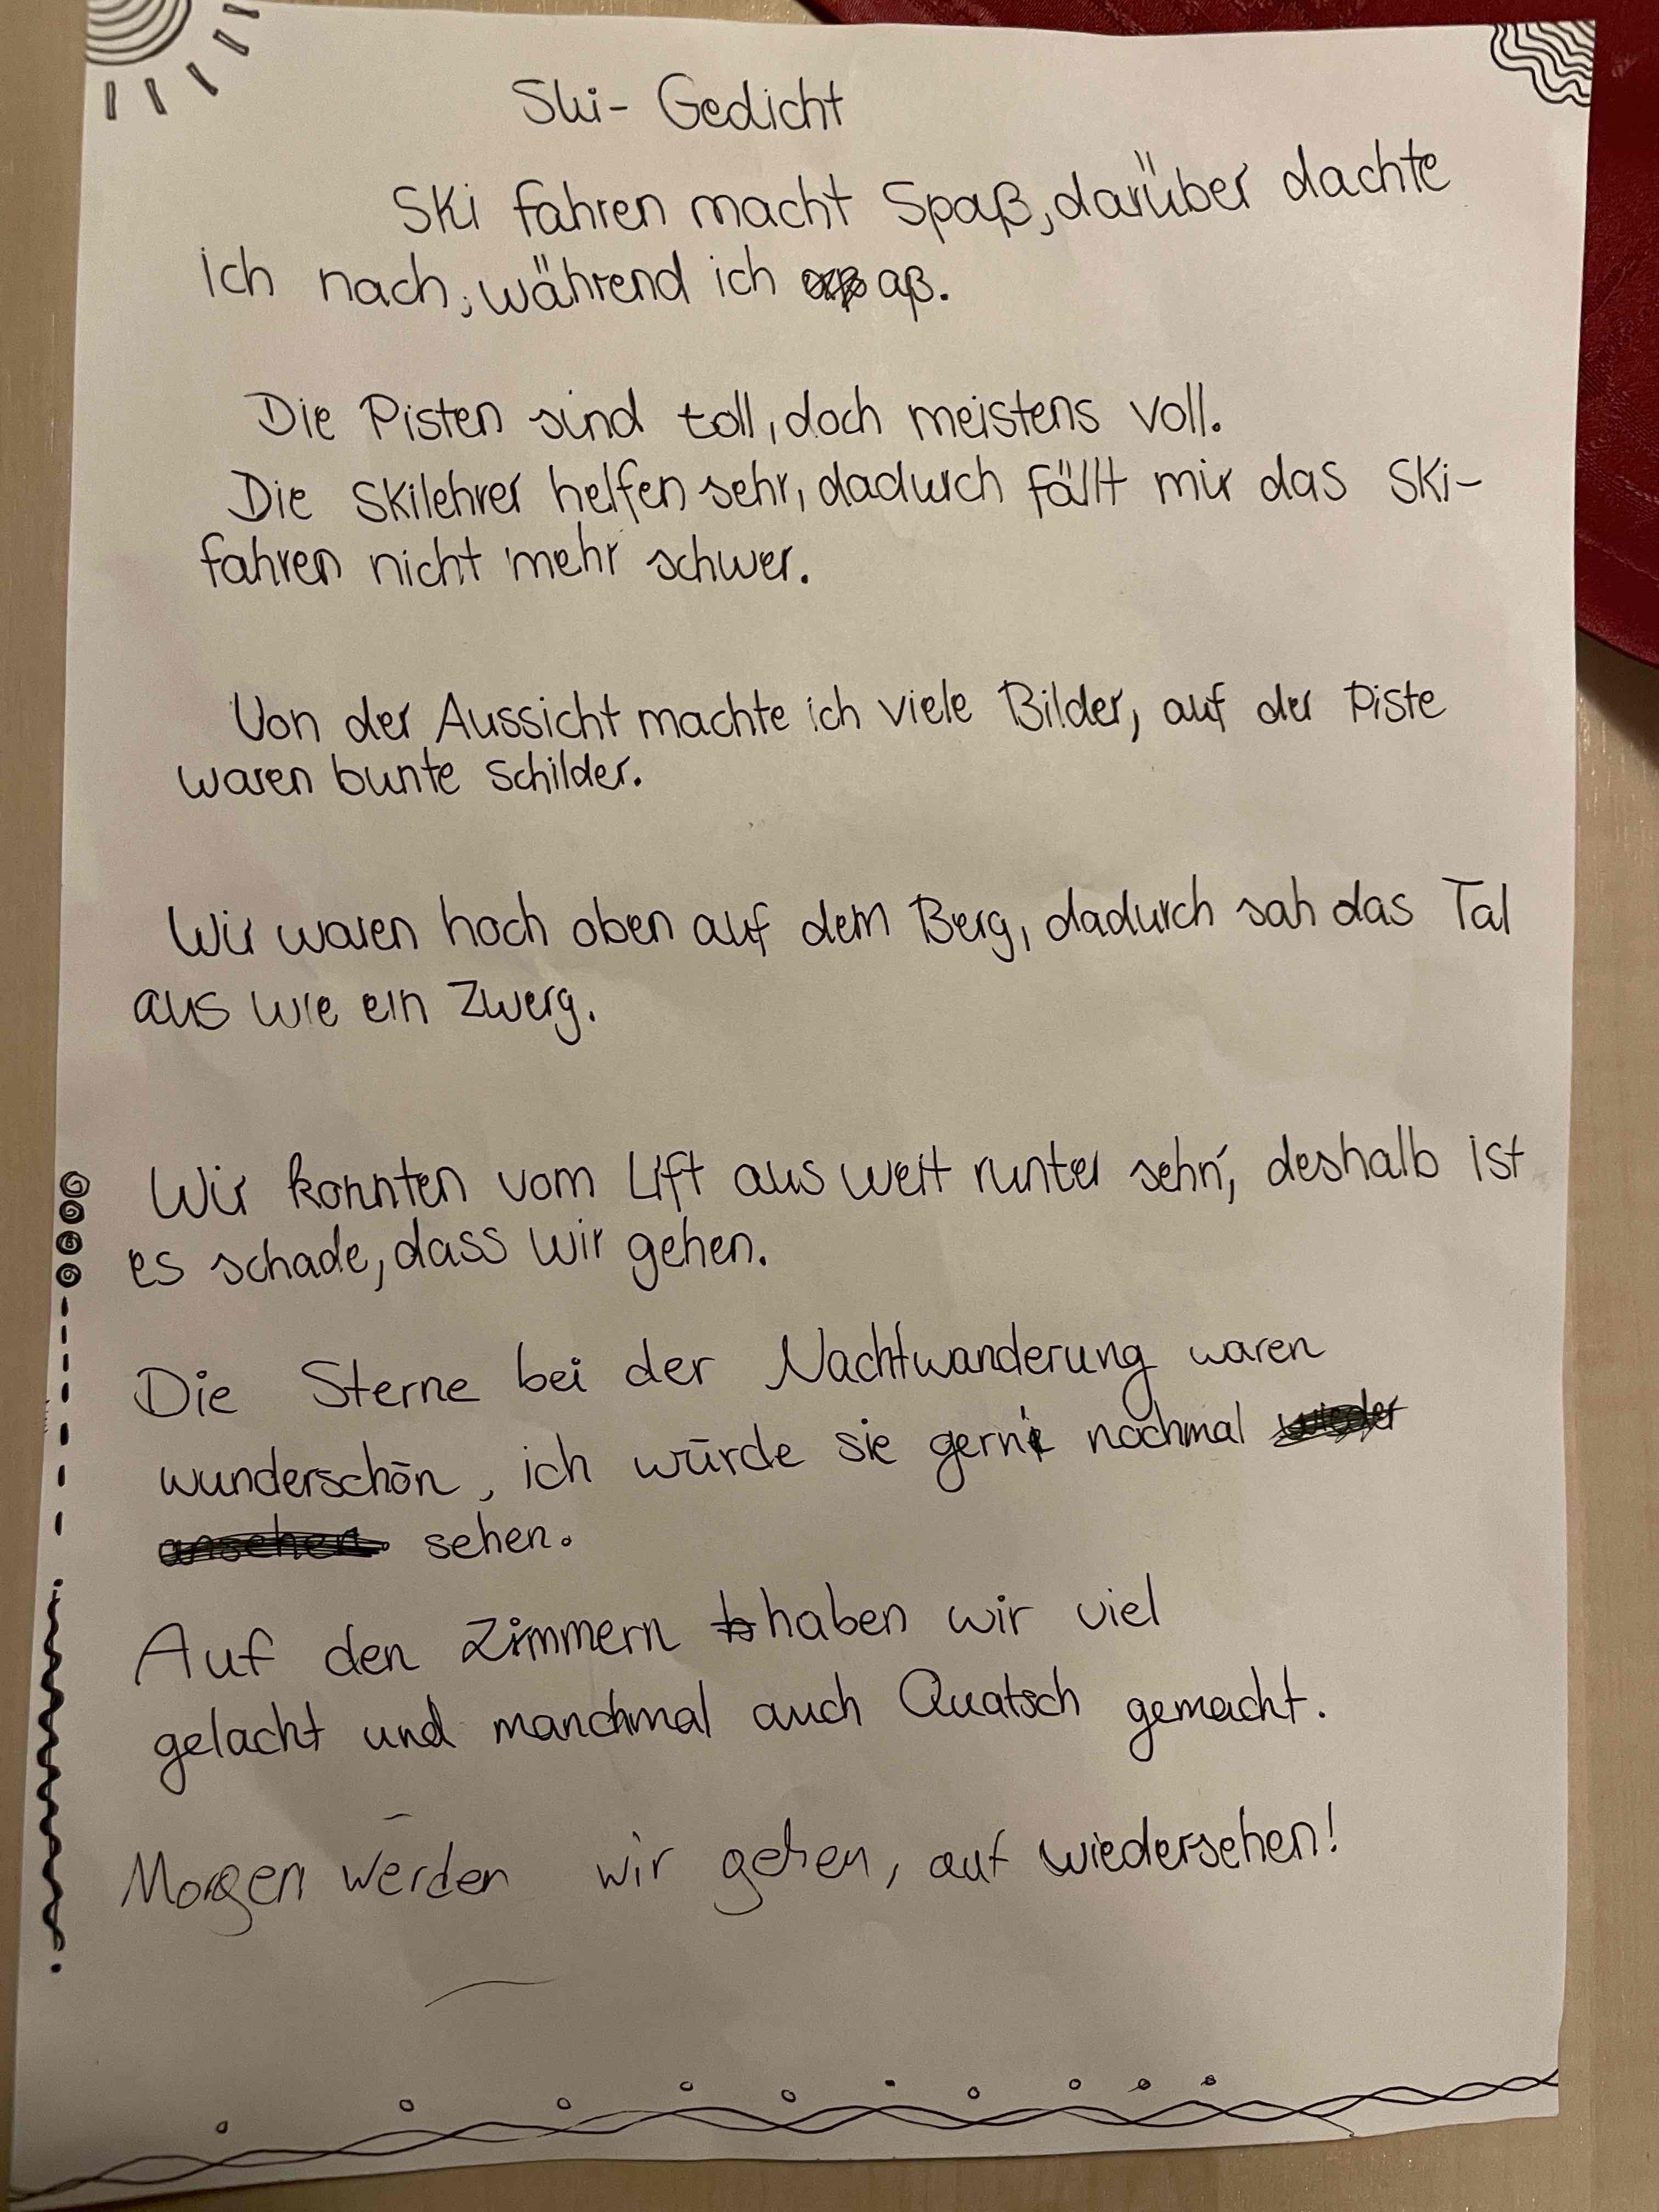 Ski- Gedicht
Ski fahren macht Spaß, darüber dachte
ich nach, während ich aß.
Die Pisten sind toll, doch meistens voll.
Die Skilehrer helfen sehr, dadurch fällt mir das Ski-
fahren nicht mehr schwer.
Von der Aussicht machte ich viele Bilder, auf der Piste
waren bunte Schilder.
Wir waren hoch oben auf dem Berg, dadurch sah das Tal
aus wie ein Zwerg.
Wir konnten vom Lift aus weit runter sehn', deshalb ist
es schade, dass wir gehen.
Die Sterne bei der Nachtwanderung waren
wunderschön, ich würde sie gern nochmal wieder
ansehen. sehen.
Auf den Zimmern haben wir viel
gelacht und manchmal auch Quatsch gemacht.
Morgen werden wir gehen, auf wiedersehen!